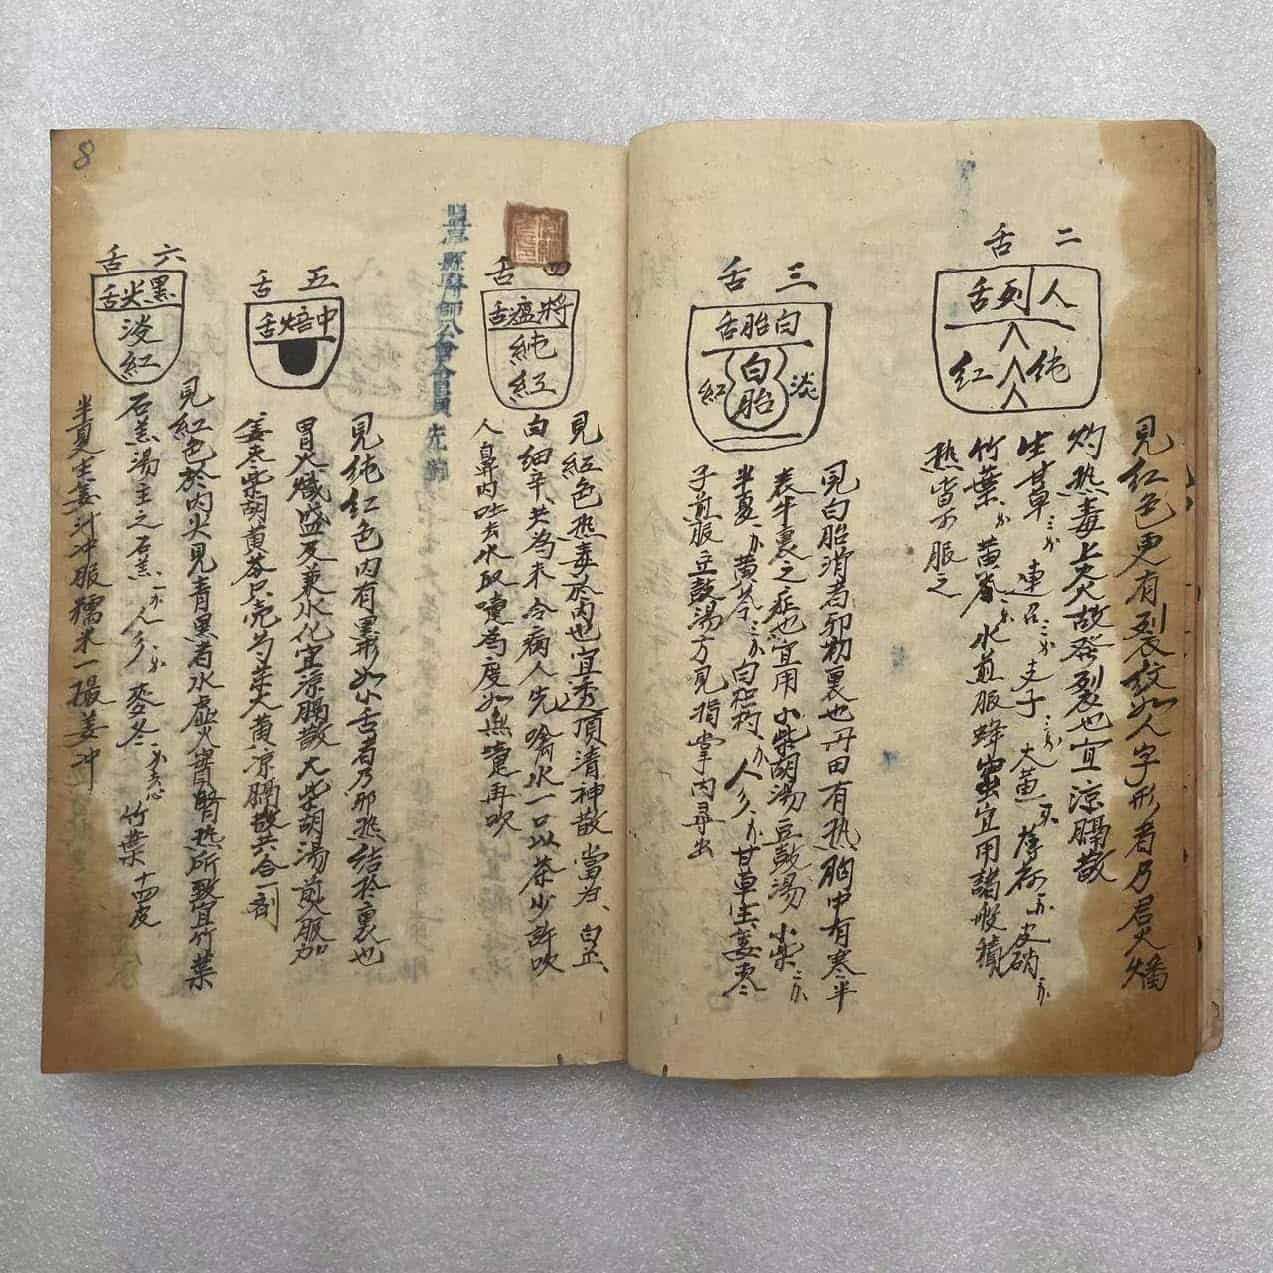 二舌
人列舌
人
人
人
純紅
見紅色更有裂紋如人字形者乃君火燔
灼热毒上炎故發裂也宜涼膈散
生甘草 連召 支子 大黄 薄荷 皮硝
竹葉 黄芩 水煎服蜂蜜宜用諸般積
热皆可服之
三舌
白胎舌
白胎
淡紅
見白胎滑者邪初裏也丹田有热胸中有寒半
表半裏之症也宜用小柴胡湯豆鼓湯 小柴
半夏 黄芩 白芍 人参 甘草 生姜 枣
子煎服豆鼓湯方見指掌内尋出
四舌
將瘟舌
純紅
見紅色热毒於内也宜透頂清神散 當归 白芷
白細辛 共為末令病人先噙水一口以茶少許吹
人鼻内吐去水取嚏為度如無嚏再吹
五舌
中焙舌
見純紅色内有黑形如小舌者乃邪热結於裏也
胃火熾盛反兼水化宜涼膈散大柴胡湯煎服加
姜枣柴胡黄芩只壳芍药大黄涼膈散共合一劑
六舌
黑尖舌
淡紅
見紅色於内尖見青黑者水虛火實腎热所致宜竹葉
石羔湯主之石羔 人参 麥冬 去心 竹葉 十四皮
半夏生姜汁冲服糯米一撮姜冲
8